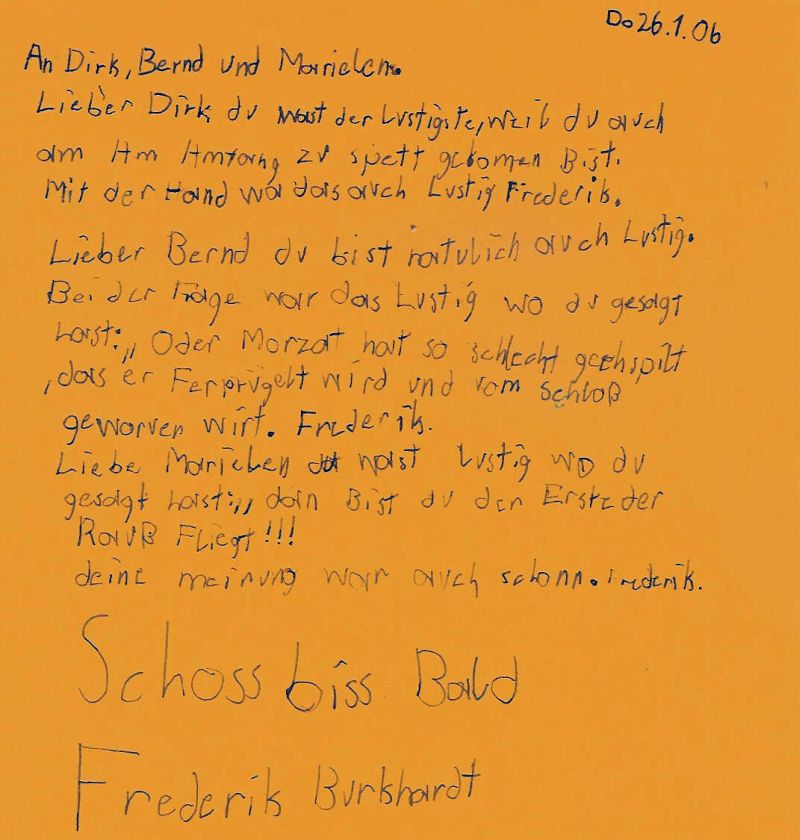 Do 26.1.06
An Dirk, Bernd und Marielen.
Lieber Dirk du wast der Lustigste, weil du auch
am Am Amfang zu spett gekomen Bist.
Mit der Hand war das auch Lustig Frederik.
Lieber Bernd du bist natulich auch Lustig.
Bei der Frage war das Lustig wo du gesagt
hast: „ Oder Morzat hat so schlecht geehspilt
, das er Ferprügelt wird und vom Schloß
geworven wirt. Frederik.
Liebe Marielen wast lustig wo du
gesagt hast: „ dan Bist du der Erste der
Rauß Fliegt!!!
deine meinung war auch schonn. Frederik.
Schoss biss Bald
Frederik Burkhardt